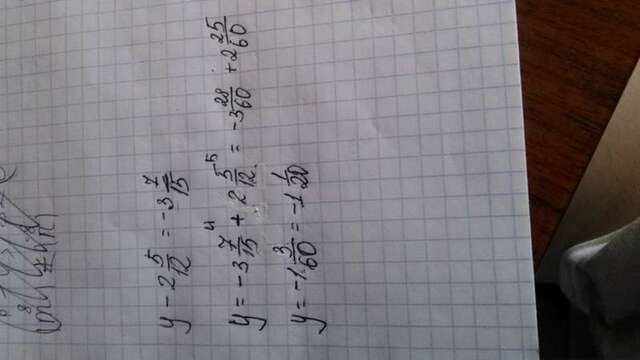 y - 2 5/12 = -3 7/15
y = -3 7/15 ⁴ + 2 5/12 ⁵ = -3 28/60 + 2 25/60
y = -1 3/60 = -1 1/20